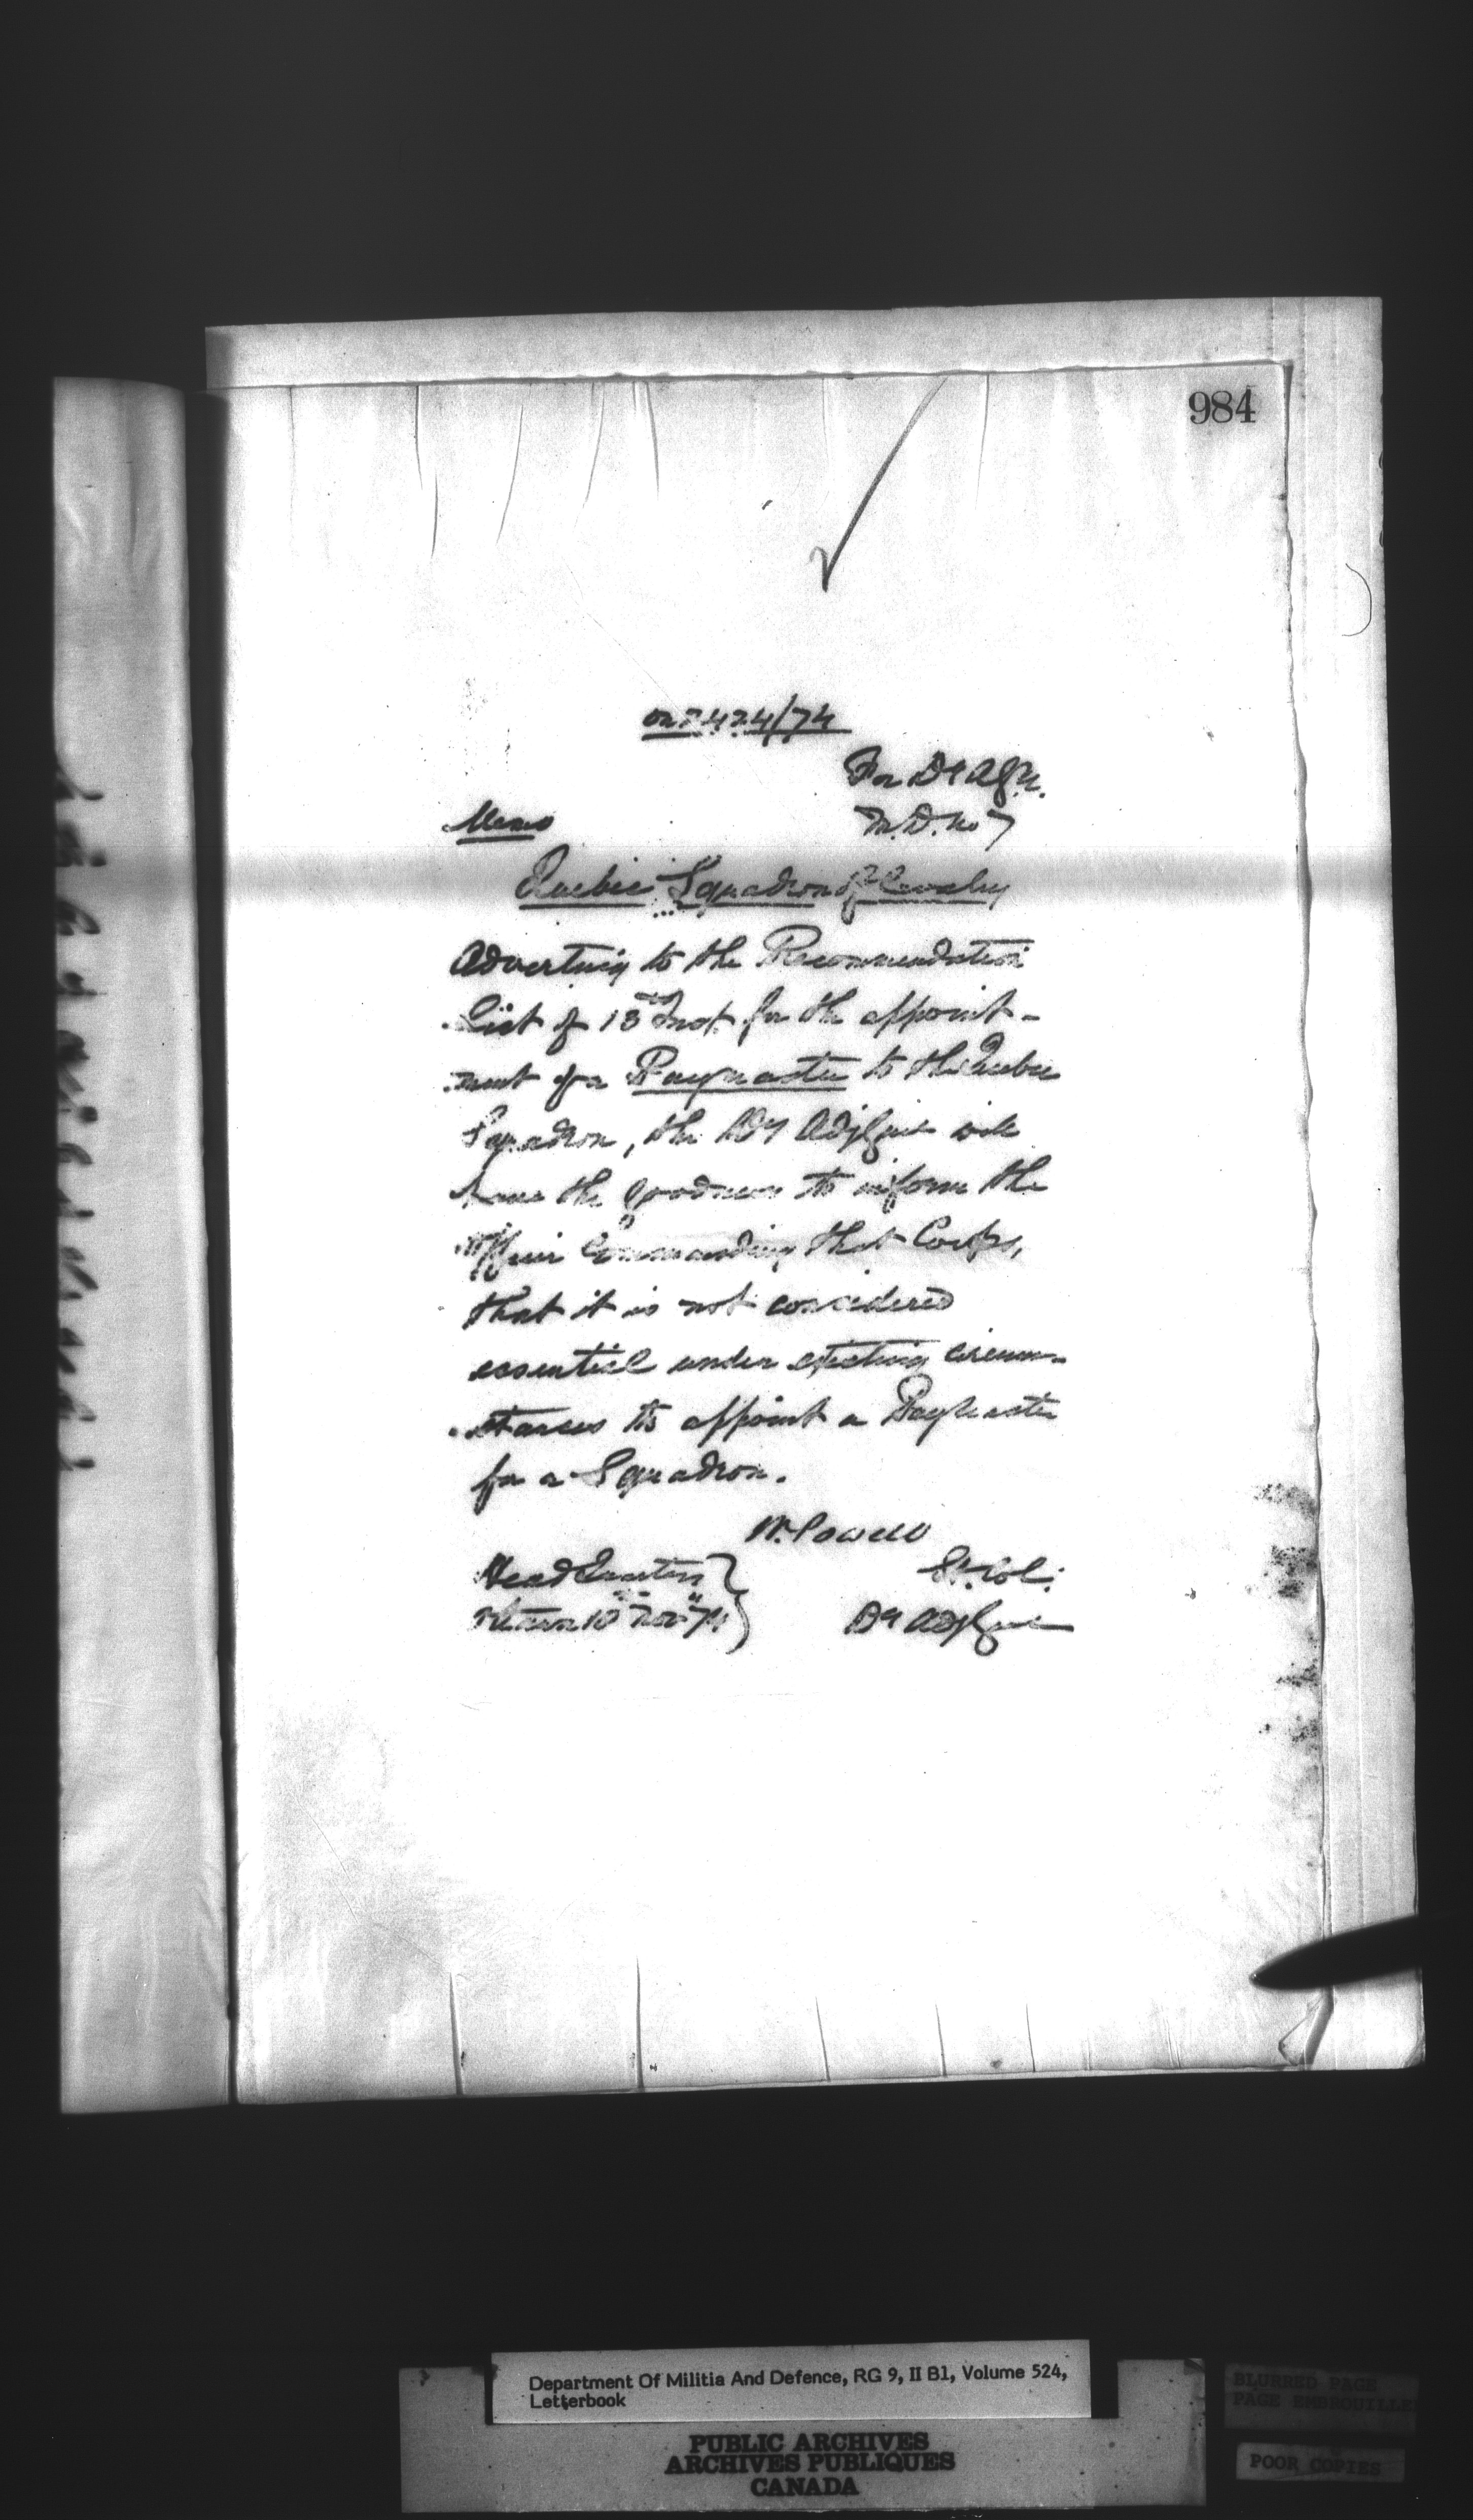 984
on 7424/74
For Dy A.G.M.
M.D. No 7
Memo
Quebec Squadron of Cavalry
Adverting to the Recommendation
List of 13th Inst. for the appoint-
ment of a Paymaster to the Quebec
Squadron, the Dy Adj Genl will
have the goodness to inform the
Officer Commanding that Corps,
that it is not considered
essential under existing circum-
stances to appoint a Paymaster
for a Squadron.
W. Powell
Head Quarters
Lt. Col:
Ottawa Nov 74
Dy Adj Genl
Department Of Militia And Defence, RG 9, II B1, Volume 524,
Letterbook
PUBLIC ARCHIVES
ARCHIVES PUBLIQUES
CANADA
BLURRED PAGE
PAGE EMBROUILLE
POOR COPIES